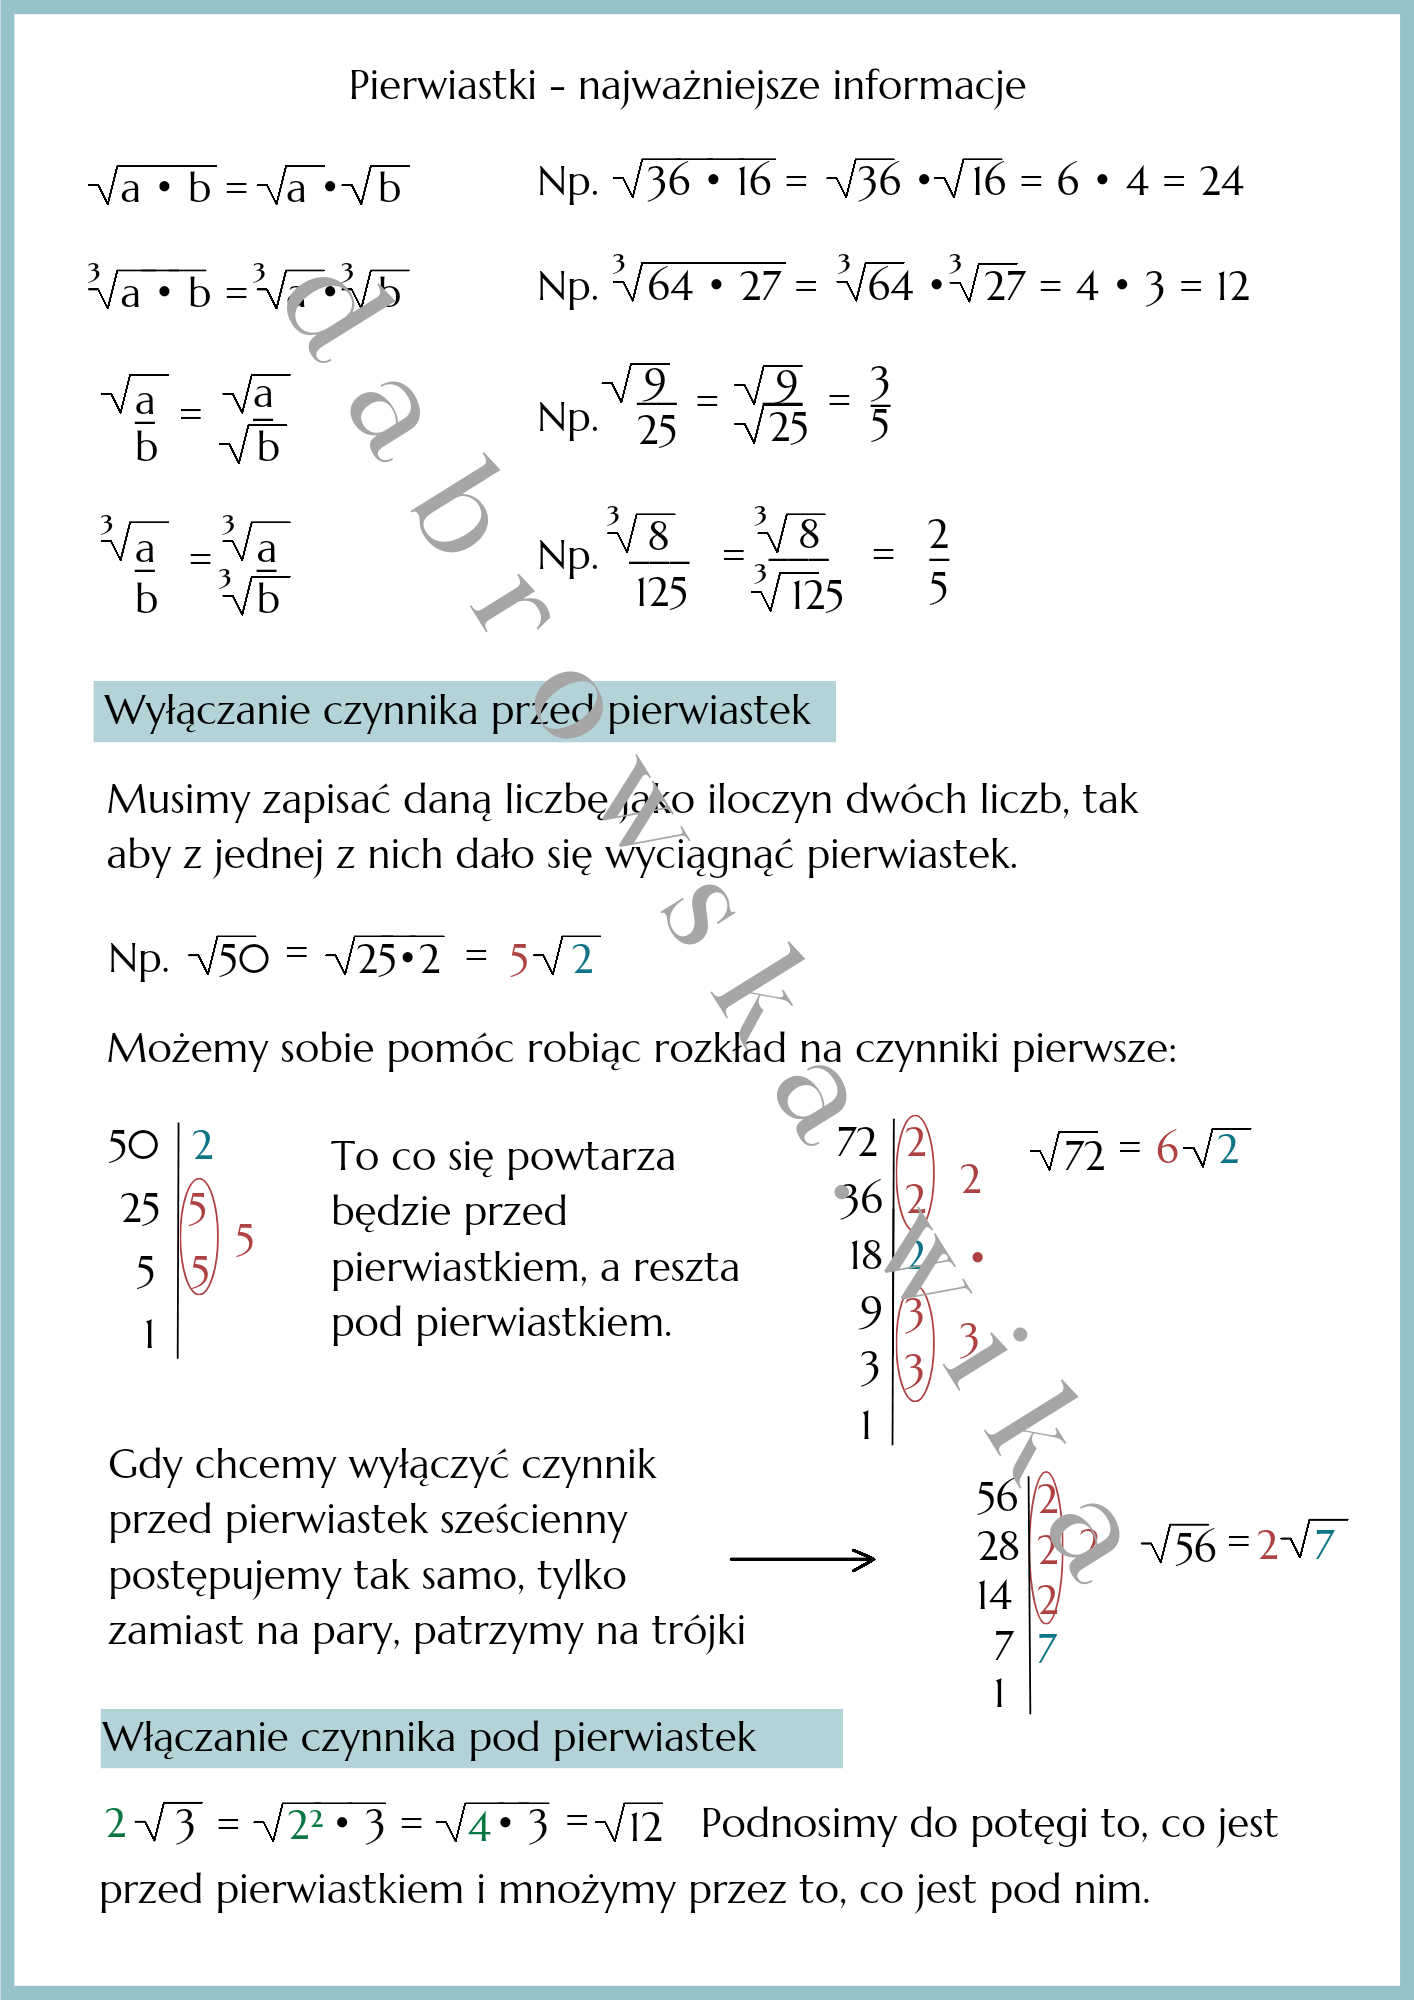 Pierwiastki - najważniejsze informacje
√a • b = √a • √b Np. √36 • 16 = √36 • √16 = 6 • 4 = 24
³√a • b = ³√a • ³√b Np. ³√64 • 27 = ³√64 • ³√27 = 4 • 3 = 12
√a/b = √a/√b Np. √9/25 = √9/√25 = 3/5
³√a/b = ³√a/³√b Np. ³√8/125 = ³√8/³√125 = 2/5
Wyłączanie czynnika przed pierwiastek
Musimy zapisać daną liczbę jako iloczyn dwóch liczb, tak
aby z jednej z nich dało się wyciągnąć pierwiastek.
Np. √50 = √25•2 = 5√2
Możemy sobie pomóc robiąc rozkład na czynniki pierwsze:
50 | 2
25 | 5
5
5 | 5
1
To co się powtarza
będzie przed
pierwiastkiem, a reszta
pod pierwiastkiem.
72 | 2
2
36 | 2
18 | 2 •
9 | 3
3
3 | 3
1
√72 = 6√2
Gdy chcemy wyłączyć czynnik
przed pierwiastek sześcienny
postępujemy tak samo, tylko
zamiast na pary, patrzymy na trójki
56 | 2
28 | 2 2
14 | 2
7 | 7
1
√56 = 2√7
Włączanie czynnika pod pierwiastek
2√3 = √2² • 3 = √4 • 3 = √12 Podnosimy do potęgi to, co jest
przed pierwiastkiem i mnożymy przez to, co jest pod nim.
dabrowska.wika